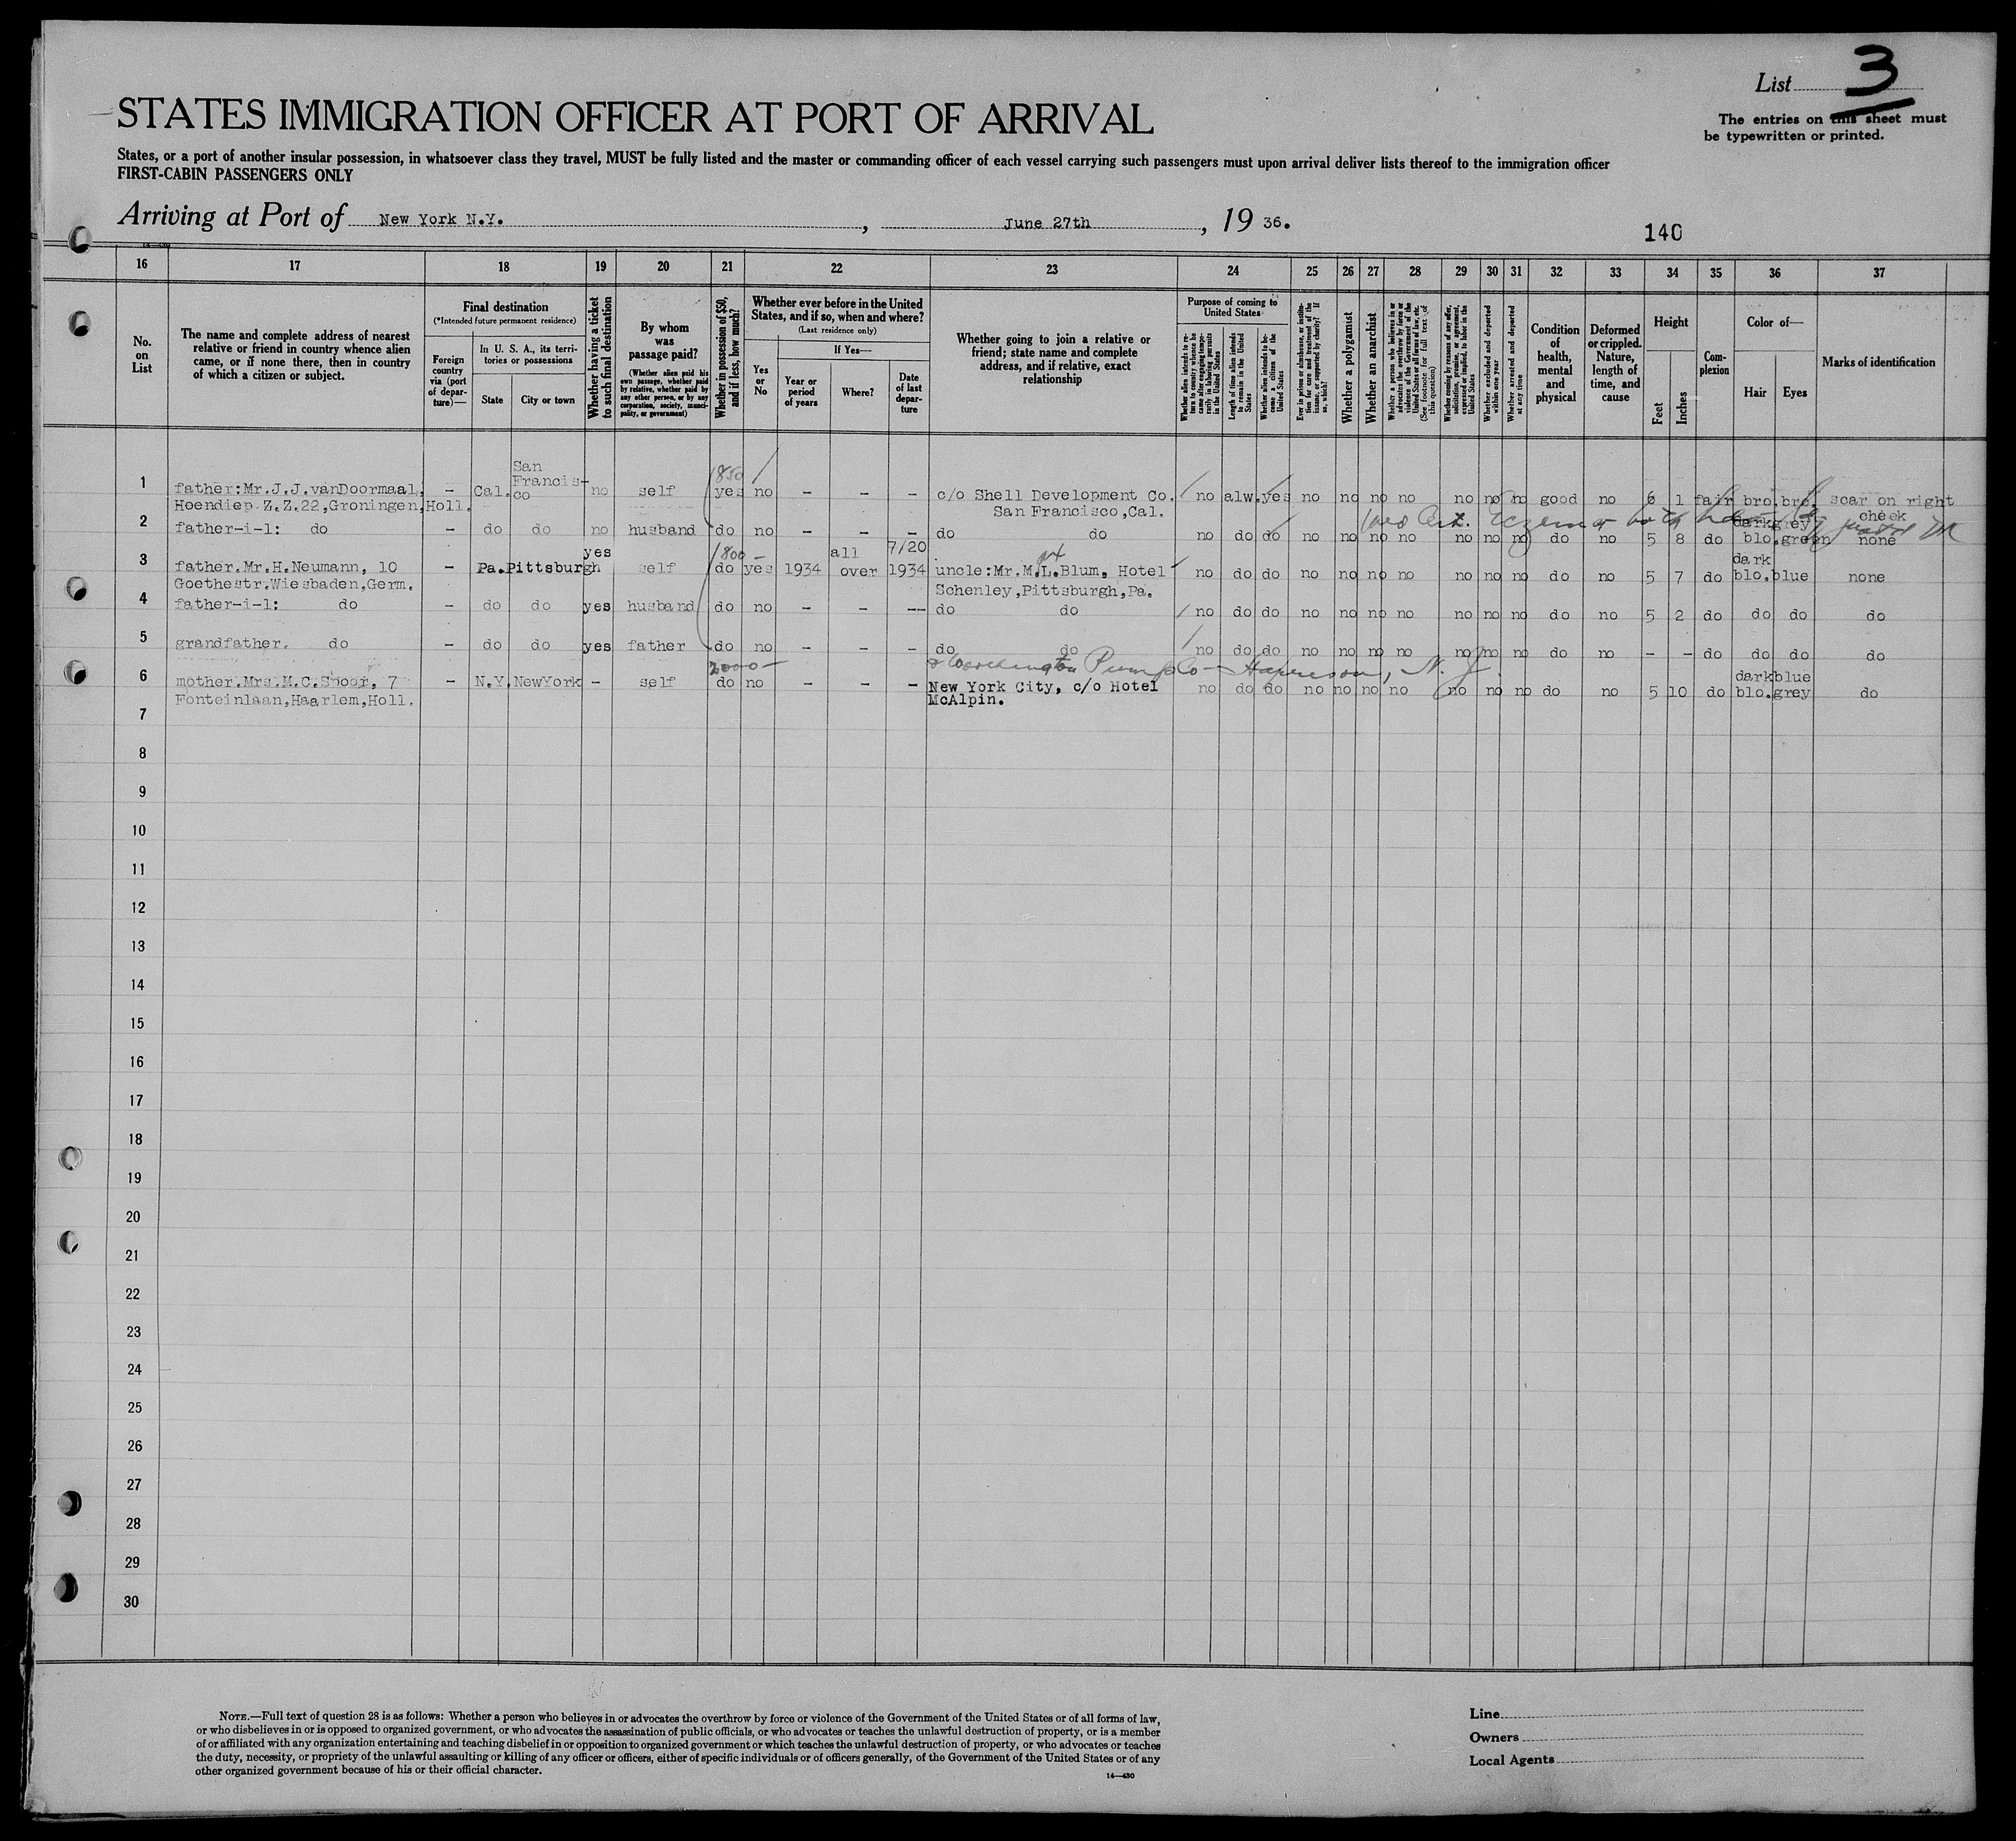 List 3
The entries on this sheet must
be typewritten or printed.
STATES IMMIGRATION OFFICER AT PORT OF ARRIVAL
States, or a port of another insular possession, in whatsoever class they travel, MUST be fully listed and the master or commanding officer of each vessel carrying such passengers must upon arrival deliver lists thereof to the immigration officer
FIRST-CABIN PASSENGERS ONLY
Arriving at Port of New York N.Y. , June 27th , 19 36.
140
16 17 18 19 20 21 22 23 24 25 26 27 28 29 30 31 32 33 34 35 36 37
No. on List
The name and complete address of nearest
relative or friend in country whence alien
came, or if none there, then in country
of which a citizen or subject.
Final destination
(*Intended future permanent residence)
Foreign country via (port of departure)—
In U. S. A., its territories or possessions
State
City or town
Whether having a ticket to such final destination
By whom was passage paid?
(Whether alien paid his own passage, whether paid by relative, whether paid by any other person, or by any corporation, society, municipality, or government)
Whether in possession of $50, and if less, how much?
Whether ever before in the United
States, and if so, when and where?
(Last residence only)
Yes or No
If Yes—
Year or period of years
Where?
Date of last departure
Whether going to join a relative or
friend; state name and complete
address, and if relative, exact
relationship
Purpose of coming to United States
Whether alien intends to return to country whence he came after engaging temporarily in laboring pursuits in the United States
Length of time alien intends to remain in the United States
Whether alien intends to become a citizen of the United States
Ever in prison or almshouse, or institution for care and treatment of the insane, or supported by charity? If so, which?
Whether a polygamist
Whether an anarchist
Whether a person who believes in or advocates the overthrow by force or violence of the Government of the United States or all forms of law, etc. (See footnote for full text of this question)
Whether coming by reasons of any offer, solicitation, promise, or agreement, expressed or implied, to labor in the United States
Whether excluded and deported within one year
Whether arrested and deported at any time
Condition of health, mental and physical
Deformed or crippled. Nature, length of time, and cause
Height
Feet
Inches
Complexion
Color of—
Hair
Eyes
Marks of identification
1 father:Mr.J.J.vanDoormaal, – Cal. San Francis-co no self 1850 yes no – – – c/o Shell Development Co. no alw. yes no no no no no no no good no 6 1 fair bro. bro. scar on right
Hoendiep.Z.Z.22,Groningen,Holl. San Francisco,Cal. cheek
2 father-i-l: do – do do no husband do no – – – do do no do do no no no no no no no do no 5 8 do dark blo. grey green none
Med Cert. Eczema of both
3 father.Mr.H.Neumann, 10 – Pa. Pittsburgh yes self 1800– do yes 1934 all over 7/20 1934 uncle:Mr.M.L.Blum, Hotel no do do no no no no no no no do no 5 7 do dark blo. blue none
Goethestr.Wiesbaden,Germ. Schenley,Pittsburgh,Pa.
4 father-i-l: do – do do yes husband do no – – –– do do no do do no no no no no no no do no 5 2 do do do do
5 grandfather. do – do do yes father do no – – – do do no do do no no no no no no no do no – – do do do do
2000– Worthington Pump Co – Harrison, N. J.
6 mother.Mrs.M.C.Spoor, 7 – N.Y. NewYork – self do no – – – New York City, c/o Hotel no do do no no no no no no no do no 5 10 do dark blo. blue grey do
Fonteinlaan,Haarlem,Holl. McAlpin.
7
8
9
10
11
12
13
14
15
16
17
18
19
20
21
22
23
24
25
26
27
28
29
30
NOTE.—Full text of question 28 is as follows: Whether a person who believes in or advocates the overthrow by force or violence of the Government of the United States or of all forms of law,
or who disbelieves in or is opposed to organized government, or who advocates the assassination of public officials, or who advocates or teaches the unlawful destruction of property, or is a member
of or affiliated with any organization entertaining and teaching disbelief in or opposition to organized government or which teaches the unlawful destruction of property, or who advocates or teaches
the duty, necessity, or propriety of the unlawful assaulting or killing of any officer or officers, either of specific individuals or of officers generally, of the Government of the United States or of any
other organized government because of his or their official character.
14—430
Line
Owners
Local Agents